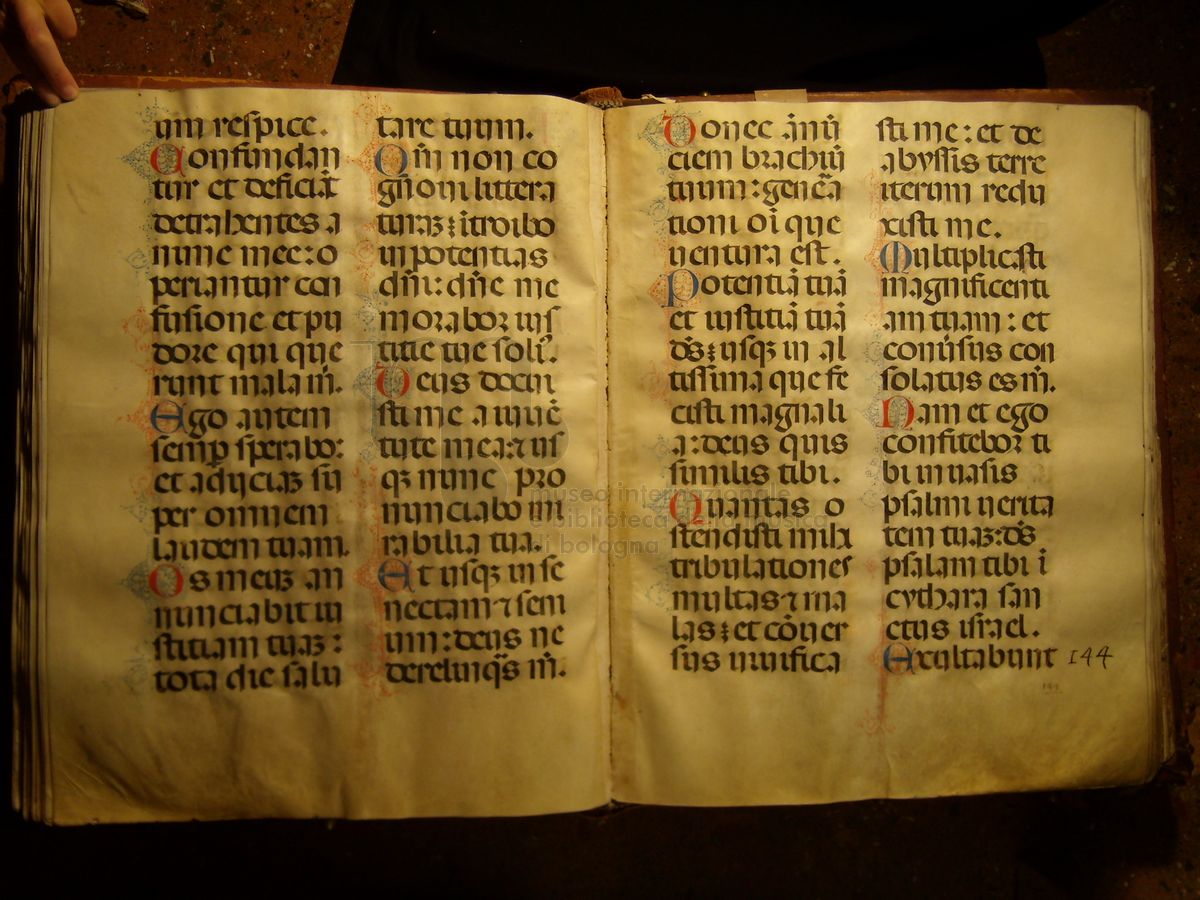 um respice.
Confundan
tur et deficiāt
detrahentes a
nime mee: o
periantur con
fusione et pu
dore qui que
runt mala m̄.
Ego autem
semp sperabo:
et adijciaʒ sū
per omnem
laudem tuam.
Os meuʒ an
nunciabit iu
stitiam tuaʒ:
tota die salu
tare tuum.
Qm̄ non co
gnoui littera
turaʒ: ītroibo
in potentias
dn̄i: dn̄e me
morabor ius
titie tue soli᷉.
Deus docui
sti me a iuuē
tute mea: ⁊ us
qʒ nunc pro
nunciabo mi
rabilia tua.
Et usqʒ in se
nectam ⁊ sen
ium: deus ne
derelinqᷓs m̄.
Donec ānū
ciem brachiū
tuum: gene᷉a
tioni oī que
uentura est.
Potentiā tuā
et iustitiā tuā
ds̄: usqʒ in al
tissima que fe
cisti magnali
a: deus quis
similis tibi.
Quantas o
stendisti mihi
tribulationes
multas ⁊ ma
las: et cōuer
sus uiuifica
sti me: et de
abyssis terre
iterum redu
xisti me.
Multiplicasti
magnificenti
am tuam: et
cōuersus con
solatus es m̄.
Nam et ego
confitebor ti
bi in uasis
psalmi uerita
tem tuaʒ: ds̄
psalam tibi ī
cythara san
ctus israel.
Exultabunt 144
museo internazionale
e biblioteca della musica
di bologna